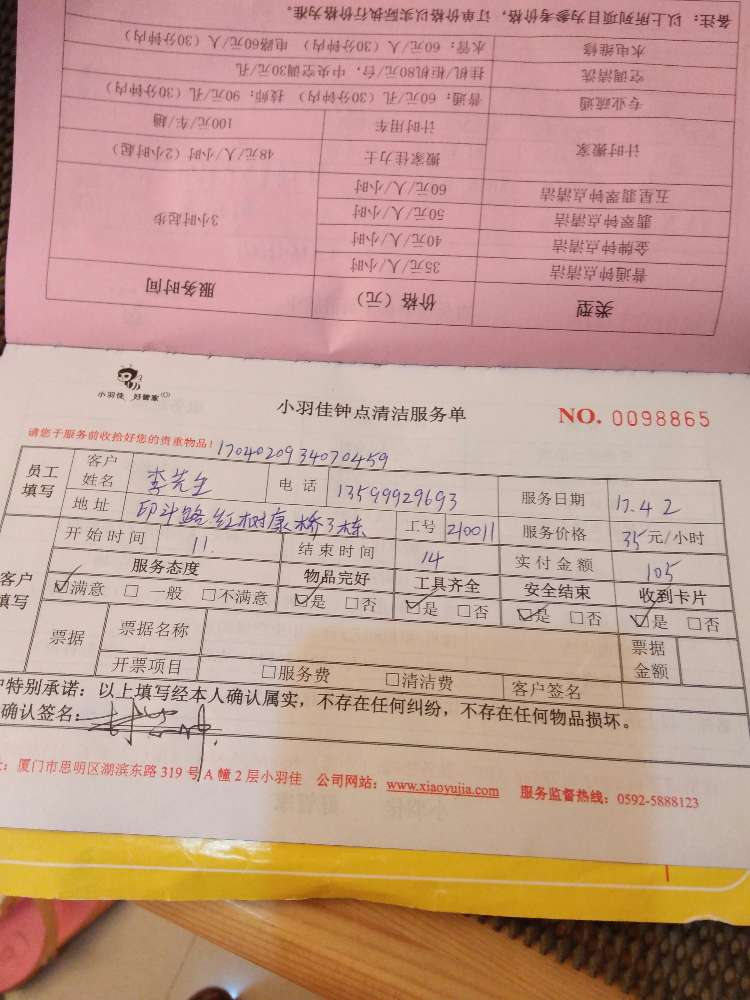 类型 价格(元) 服务时间
普通钟点清洁 35元/人/小时 3小时起步
金牌钟点清洁 40元/人/小时
翡翠钟点清洁 50元/人/小时
五星翡翠钟点清洁 60元/人/小时
计时搬家 搬家佳力士 48元/人/小时(2小时起)
计时用车 100元/车/趟
专业疏通 普通:60元/孔(30分钟内) 技师:90元/孔(30分钟内)
空调清洗 挂机/柜机80元/台,中央空调30元/孔
水电维修 水管:60元/人(30分钟内) 电路60元/人(30分钟内)
备注:以上所列项目为参考价格,订单价以实际执行价格为准。
小羽佳 好管家
小羽佳钟点清洁服务单
NO. 0098865
请您于服务前收拾好您的贵重物品! 1704020934070459
员工填写 客户姓名 李先生 电话 13599929693 服务日期 17.4 2
地址 印斗路红树康桥3栋 工号 210011 服务价格 35元/小时
客户填写 开始时间 11. 结束时间 14 实付金额 105
服务态度 物品完好 工具齐全 安全结束 收到卡片
☑满意 □一般 □不满意 ☑是 □否 ☑是 □否 ☑是 □否 ☑是 □否
票据 票据名称 票据金额
开票项目 □服务费 □清洁费 客户签名
户特别承诺:以上填写经本人确认属实,不存在任何纠纷,不存在任何物品损坏。
确认签名:
:厦门市思明区湖滨东路 319 号 A 幢 2 层小羽佳 公司网站:www.xiaoyujia.com 服务监督热线:0592-5888123